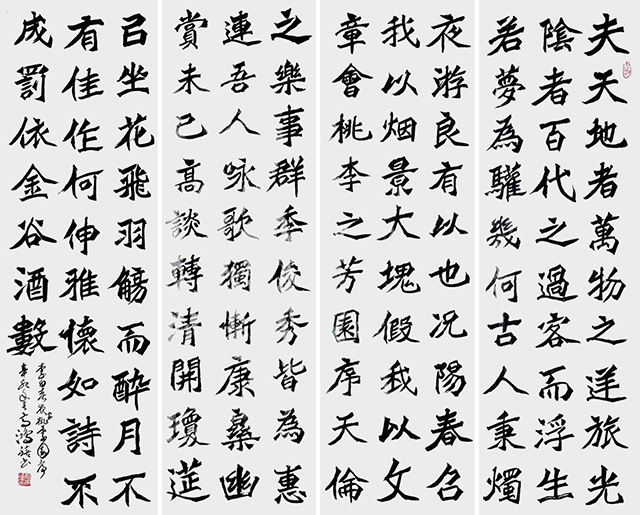 夫天地者萬物之逆旅光
陰者百代之過客而浮生
若夢為驩幾何古人秉燭
夜游良有以也况陽春召
我以烟景大塊假我以文
章會桃李之芳園序天倫
之樂事群季俊秀皆為惠
連吾人咏歌獨慚康樂幽
賞未已高談轉清開瓊筵
㠯坐花飛羽觴而醉月不
有佳作何伸雅懷如詩不
成罰依金谷酒數
李白春夜桃李園序